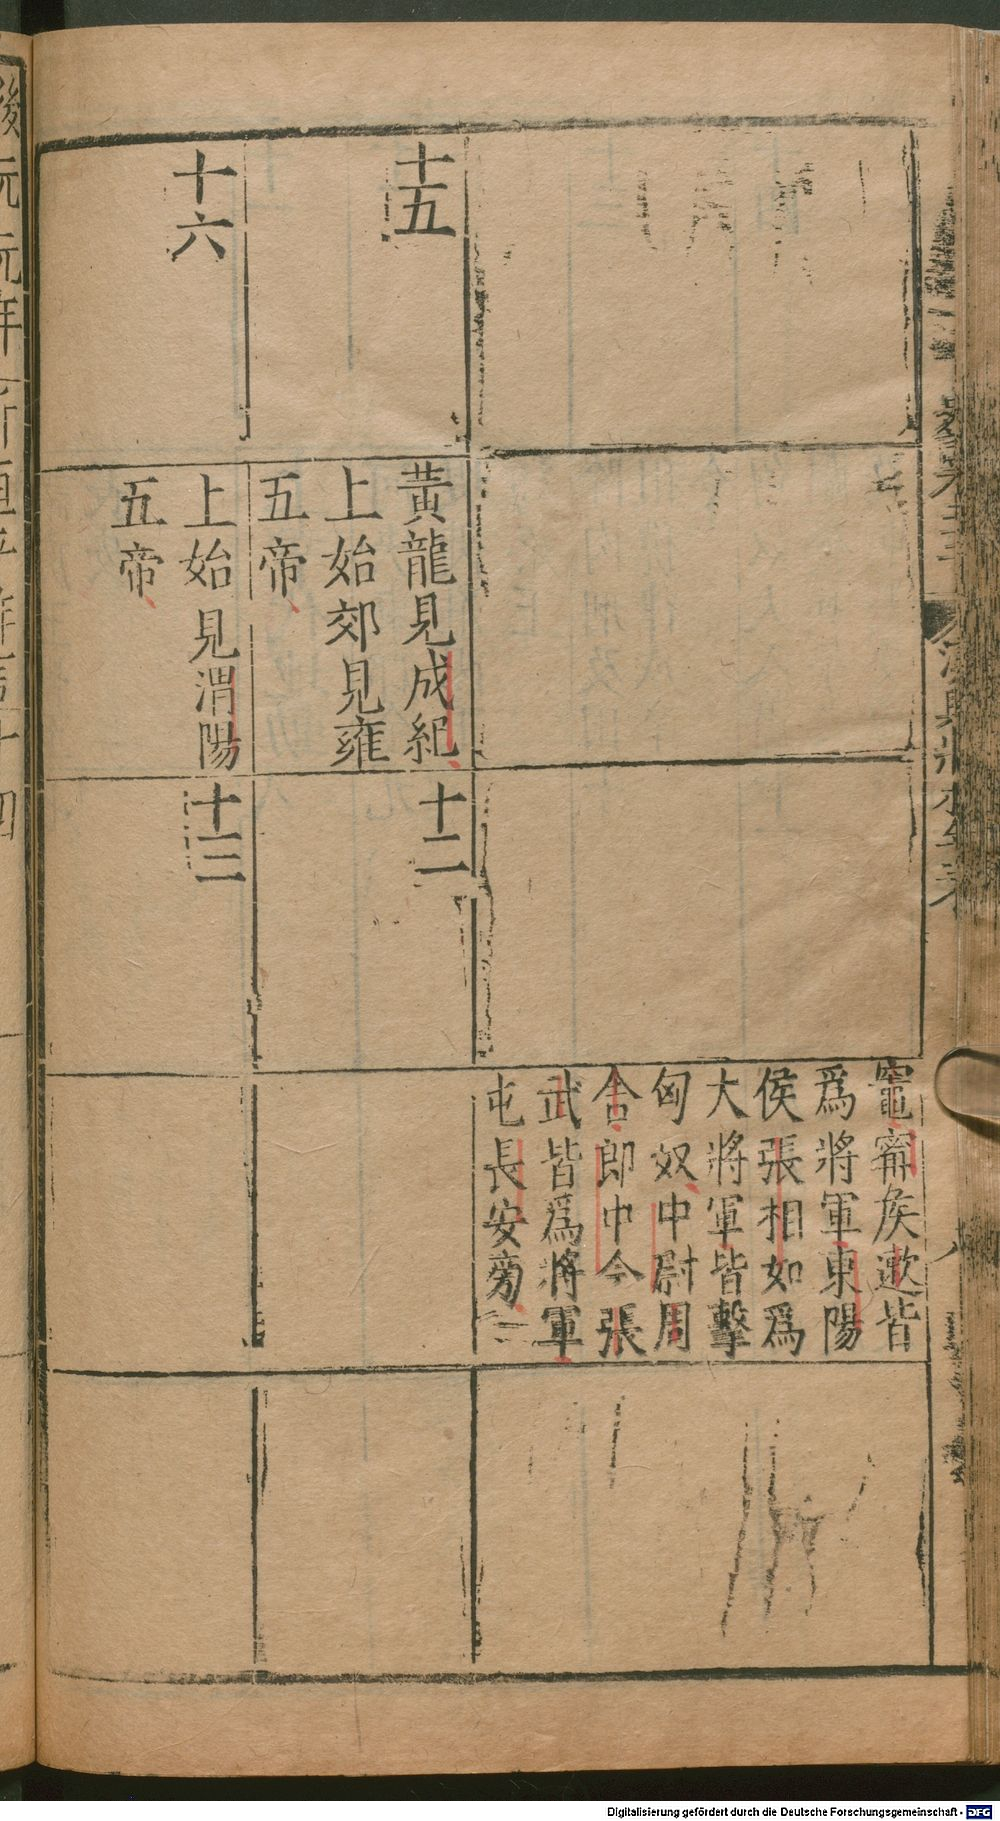 竈甯侯遬皆
爲將軍東陽
侯張相如爲
大將軍皆擊
匈奴中尉周
舎郎中令張
武皆爲將軍
屯長安旁
十五
黃龍見成紀
上始郊見雍
五帝
十二
十六
上始見渭陽
五帝
十三
Digitalisierung gefördert durch die Deutsche Forschungsgemeinschaft - DFG